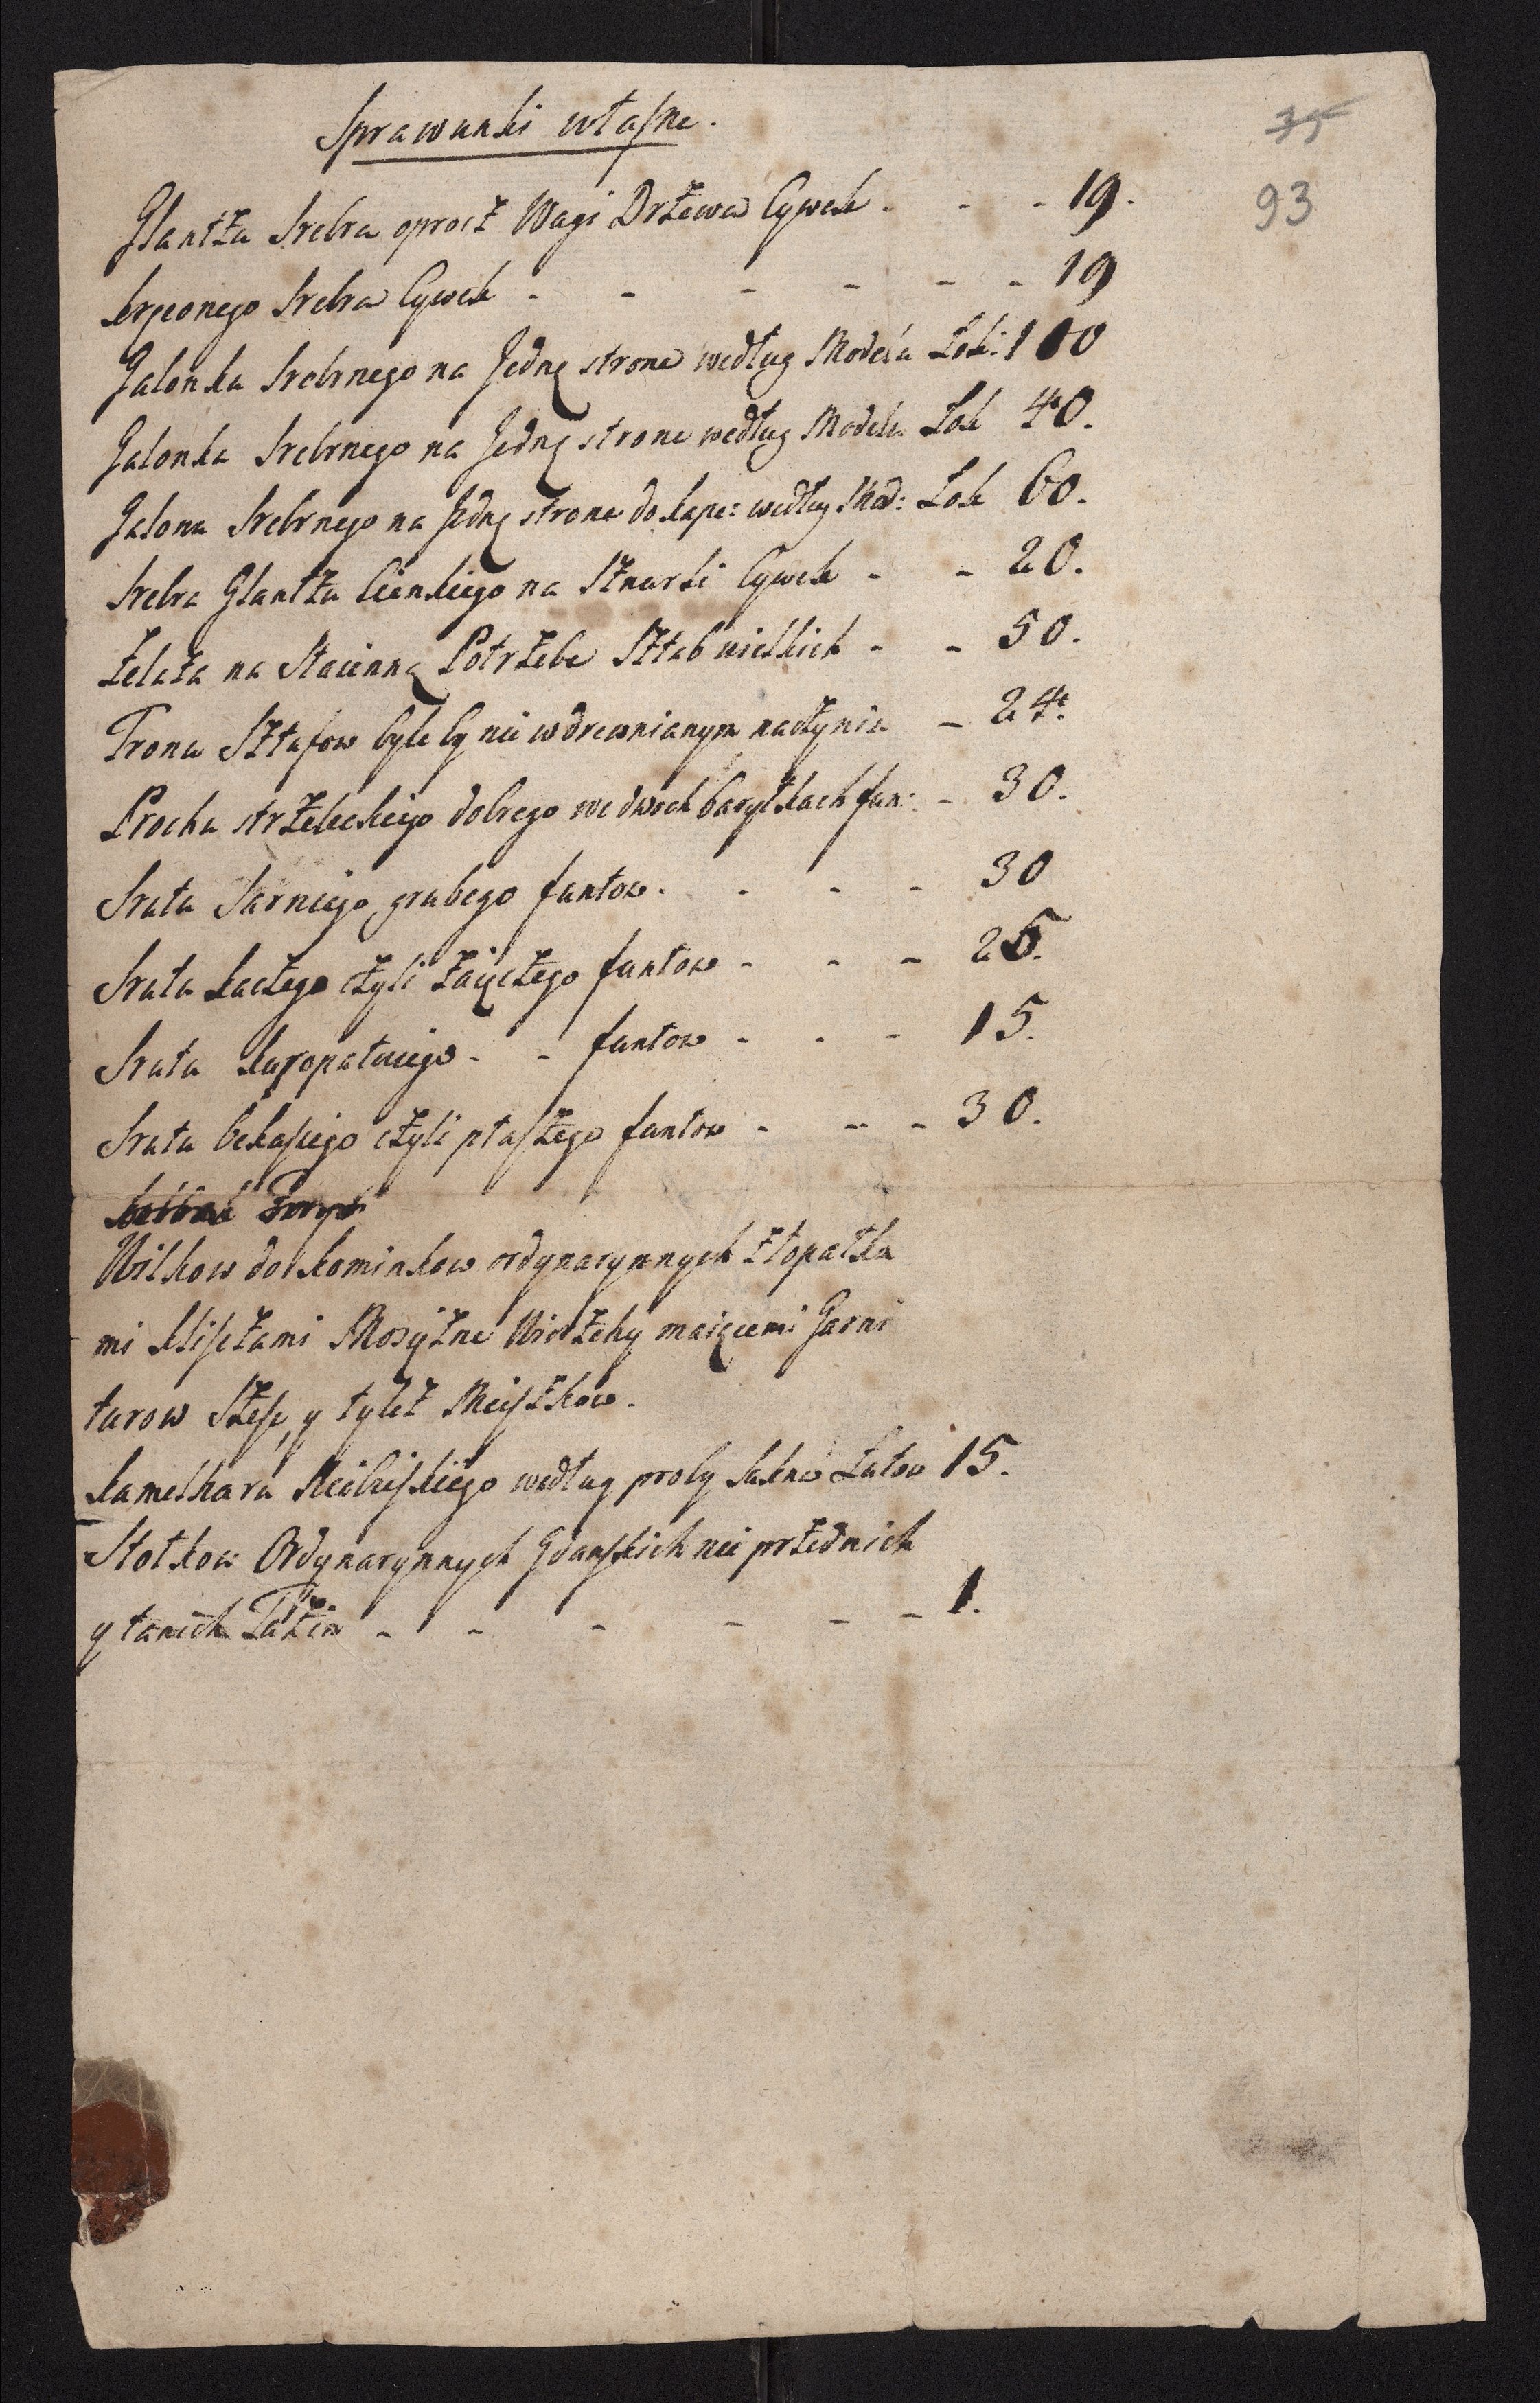 Sprawunki własne.
35
93
Glantza Srebra oprocz Wagi Drzewa Cywek - - - 19.
kręconego Srebra Cywek - - - - - - 19
Galonka Srebrnego na Jedną strone według Modelu Łok: 100
Galonka Srebrnego na Jedną strone według Modelu Łok 40.
Galona Srebrnego na Jedną strone do kape: według Mod: Łok 60.
Srebra Glantzu Cienkiego na Sznurki Cywek - - 20.
Zelaza na Stacienną Potrzebe Sztab wielkich - - 50.
Tronu Sztafow byle by nie w drewnianym naczyniu - 24.
Prochu strzeleckiego dobrego we dwoch baryłkach fun: - 30.
Srutu Sarniego grubego funtow. - - - 30
Srutu kaczego czyli Zaięczego funtow - - - 25.
Srutu kuropatwiego - - funtow - - - 15.
Srutu bekasiego czyli ptaszego funtow - - - 30.
Wilkow do kominkow ordynaryinych z łopatka
mi kliszczami Mosiężne Wierzchy maiącemi Garni
turow Szesc, y tylez Mieszkow.
kamelhoru Niebieskiego według proby sukna Łutow 15.
Stołkow Ordynaryinych Gdanskich nie przednich
y tanich Tuzin - - - - - - 1.